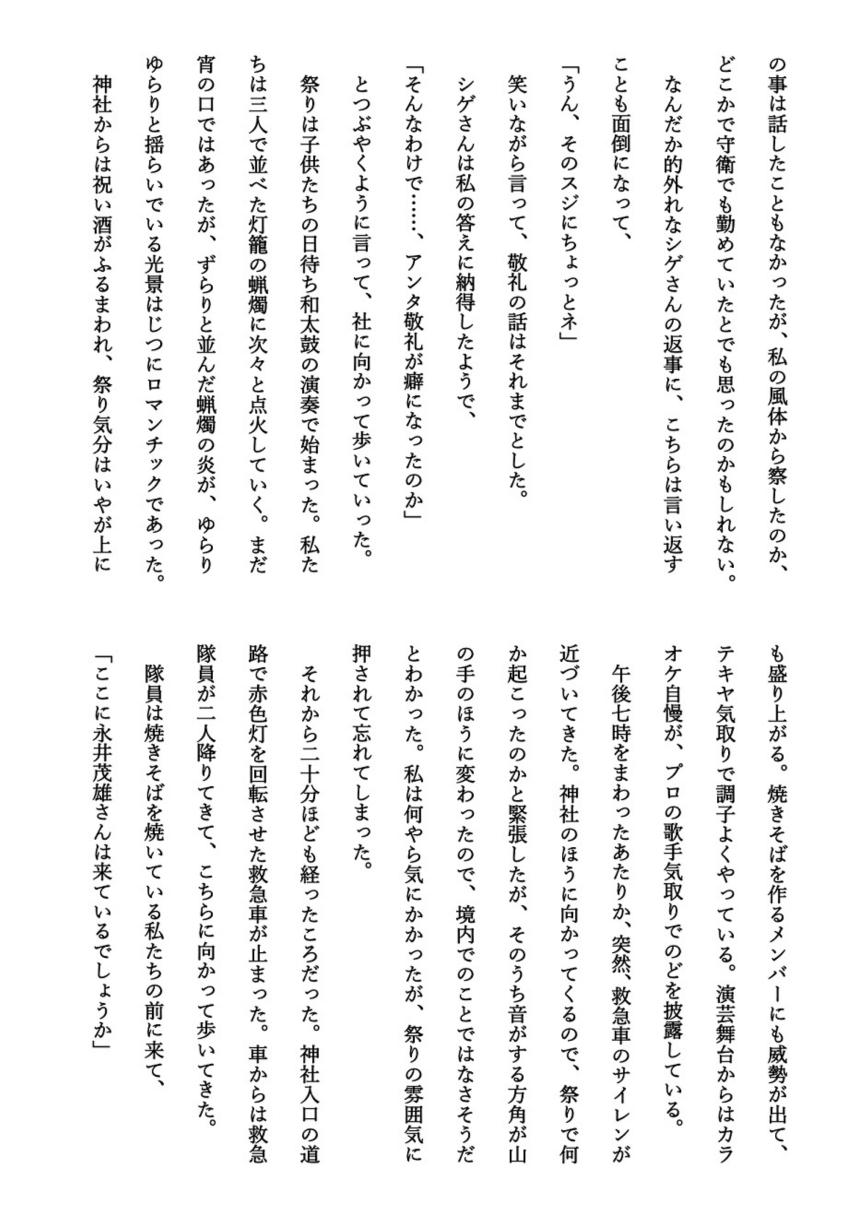 の事は話したこともなかったが、私の風体から察したのか、
どこかで守衛でも勤めていたとでも思ったのかもしれない。
なんだか的外れなシゲさんの返事に、こちらは言い返す
ことも面倒になって、
「うん、そのスジにちょっとネ」
笑いながら言って、敬礼の話はそれまでとした。
シゲさんは私の答えに納得したようで、
「そんなわけで……、アンタ敬礼が癖になったのか」
とつぶやくように言って、社に向かって歩いていった。
祭りは子供たちの日待ち和太鼓の演奏で始まった。私た
ちは三人で並べた灯籠の蝋燭に次々と点火していく。まだ
宵の口ではあったが、ずらりと並んだ蝋燭の炎が、ゆらり
ゆらりと揺らいでいる光景はじつにロマンチックであった。
神社からは祝い酒がふるまわれ、祭り気分はいやが上に
も盛り上がる。焼きそばを作るメンバーにも威勢が出て、
テキヤ気取りで調子よくやっている。演芸舞台からはカラ
オケ自慢が、プロの歌手気取りでのどを披露している。
午後七時をまわったあたりか、突然、救急車のサイレンが
近づいてきた。神社のほうに向かってくるので、祭りで何
か起こったのかと緊張したが、そのうち音がする方角が山
の手のほうに変わったので、境内でのことではなさそうだ
とわかった。私は何やら気にかかったが、祭りの雰囲気に
押されて忘れてしまった。
それから二十分ほども経ったころだった。神社入口の道
路で赤色灯を回転させた救急車が止まった。車からは救急
隊員が二人降りてきて、こちらに向かって歩いてきた。
隊員は焼きそばを焼いている私たちの前に来て、
「ここに永井茂雄さんは来ているでしょうか」